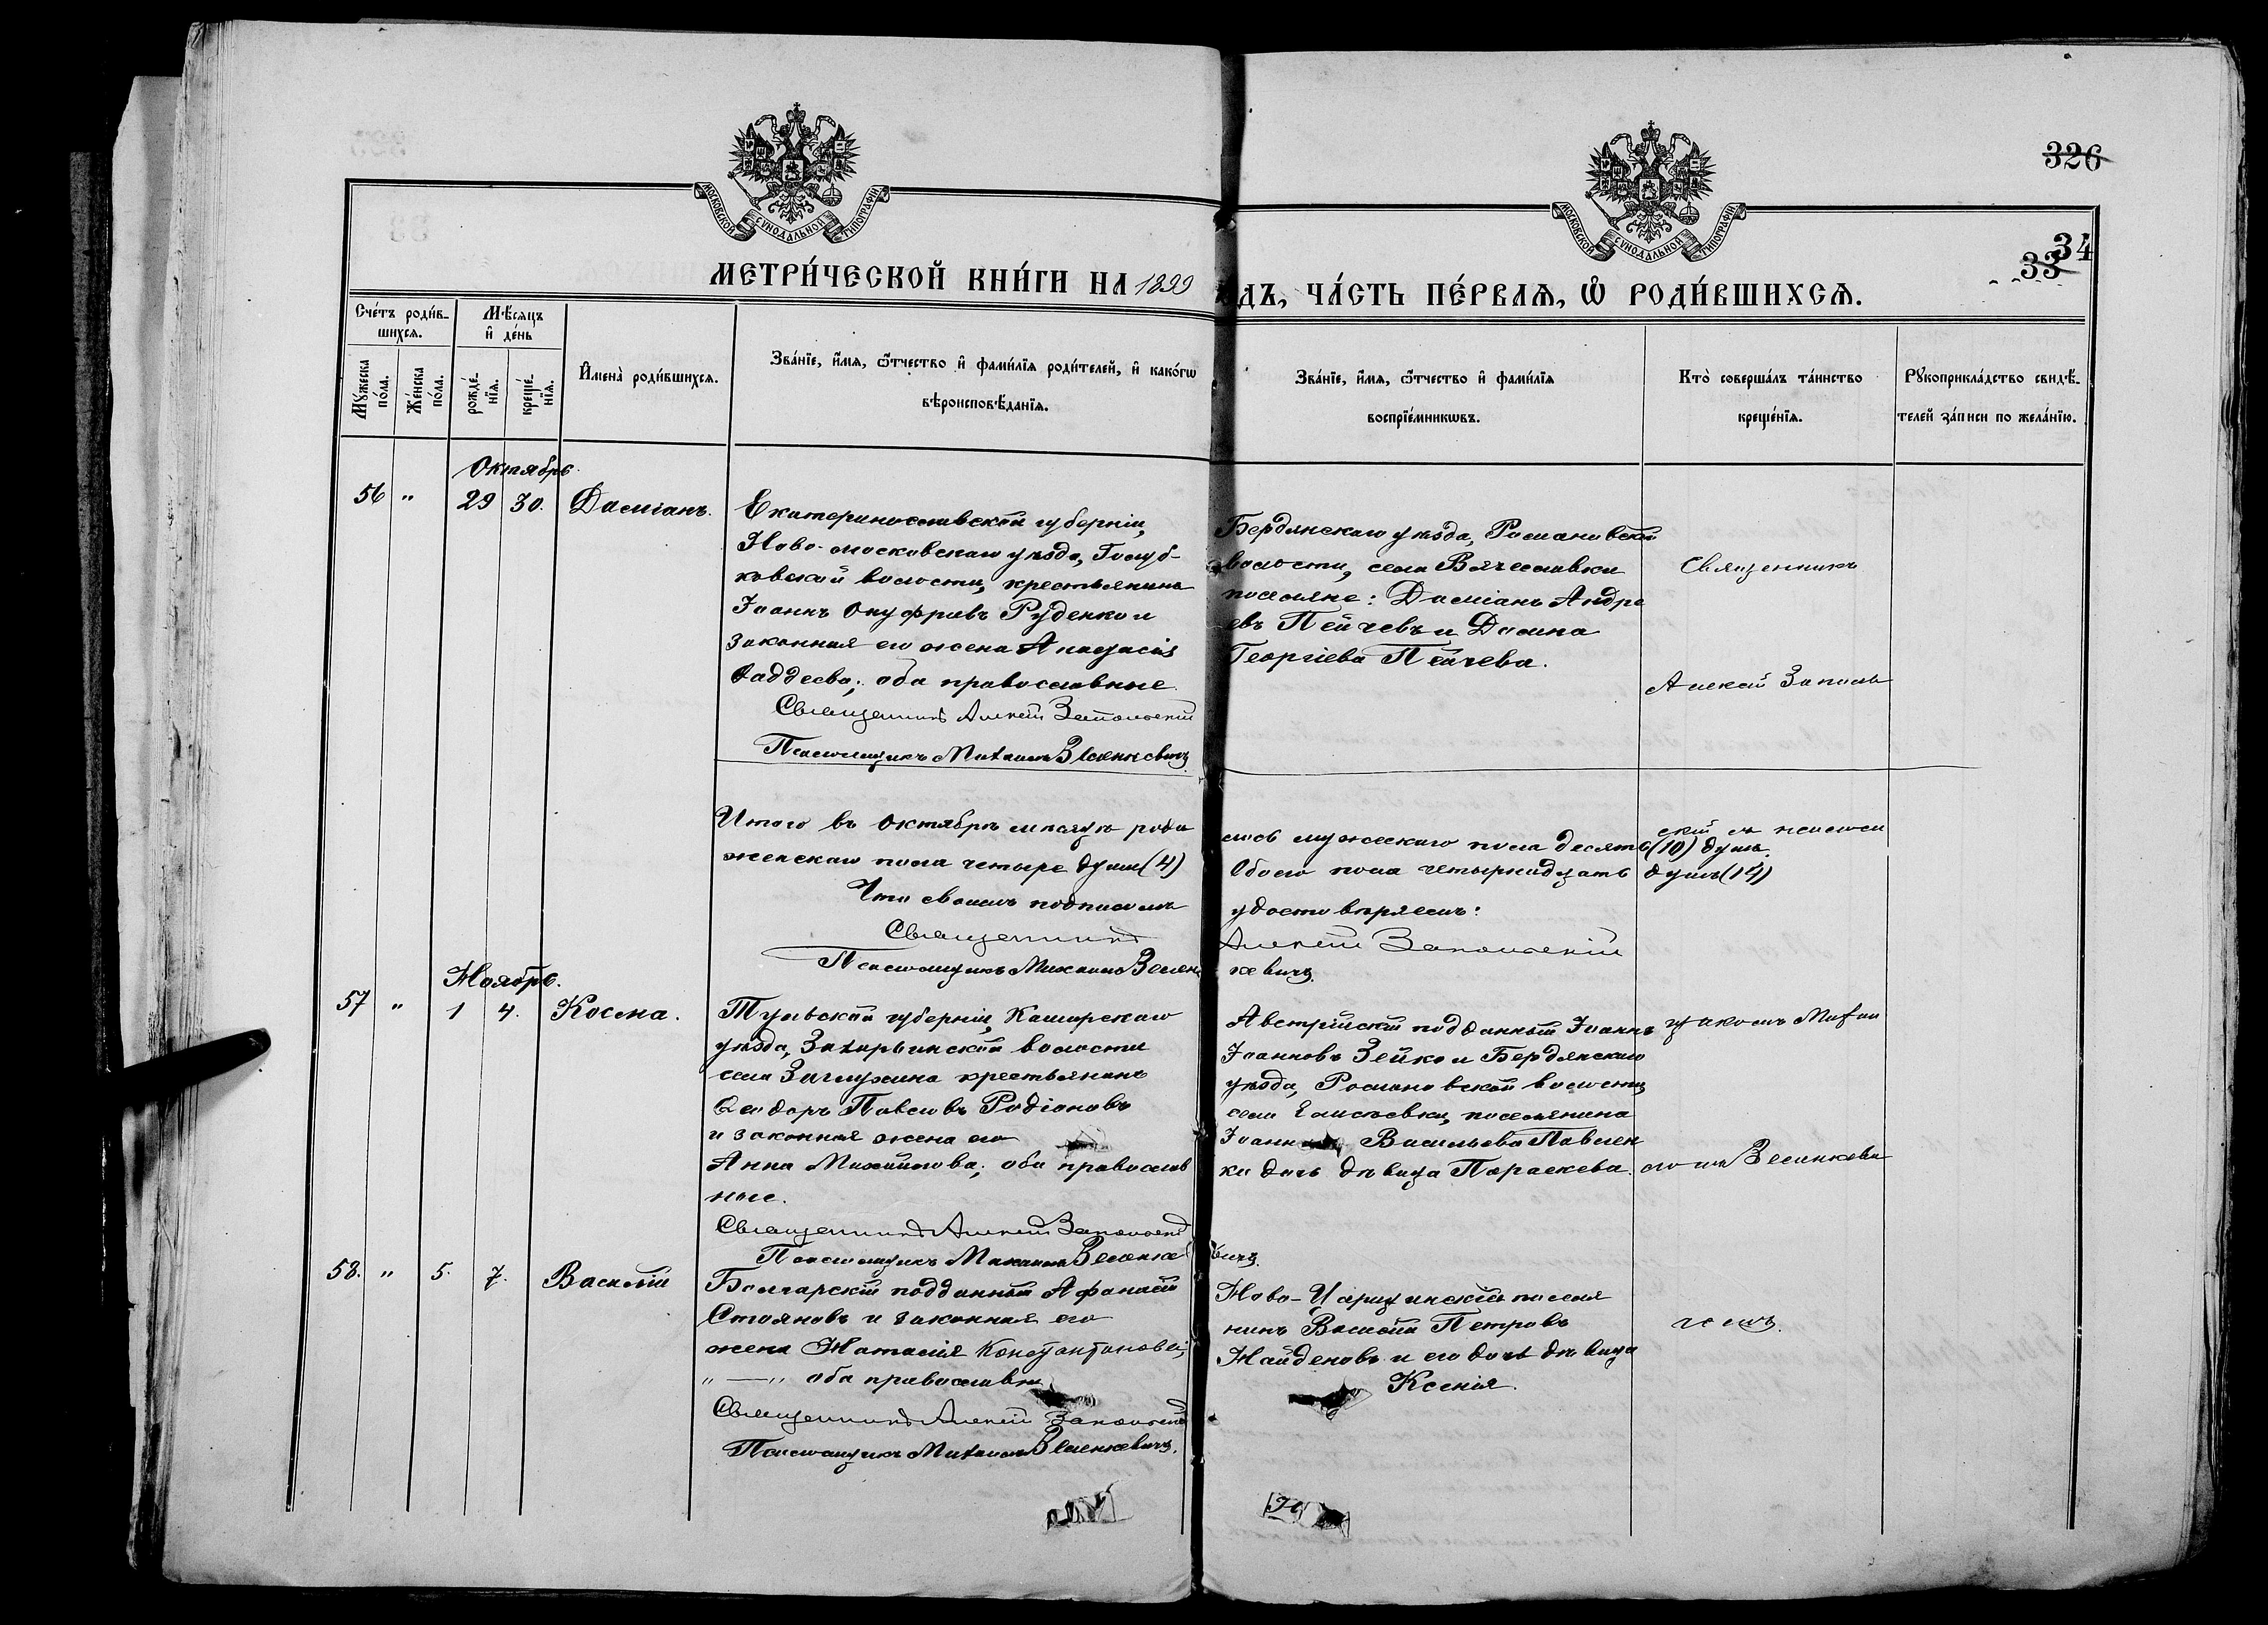 326
34
33
МОСКОВСКОЙ СѴНОДАЛЬНОЙ ТИПОГРАФІИ
МОСКОВСКОЙ СѴНОДАЛЬНОЙ ТИПОГРАФІИ
МЕТРИ́ЧЕСКОЙ КНИ́ГИ НА 1899
ДЪ, ЧА́СТЬ ПЕ́РВАѦ, Ѡ҆ РОДИ́ВШИХСѦ.
Сче́тъ роди́в-
шихсѧ.
Мꙋ́жеска
по́ла.
Же́нска
по́ла.
Мѣ́сѧцъ
и҆ де́нь
рожде́-
нїѧ.
креще́-
нїѧ.
И҆мена̀ роди́вшихсѧ.
Зва́нїе, и҆́мѧ, ѻ҆́тчество и҆ фами́лїѧ роди́телей, и҆ како́гѡ
вѣроисповѣ́данїѧ.
Зва́нїе, и҆́мѧ, ѻ҆́тчество и҆ фами́лїѧ
воспрїе́мникѡвъ.
Кто̀ соверша́лъ та́инство
креще́нїѧ.
Рꙋкоприкла́дство свидѣ́-
телей за́писи по жела́нїю.
Октябрь.
56 " 29 30. Даміанъ.
Екатеринославской губерніи,
Ново-московскаго уѣзда, Голуб-
ковской волости, крестьянинъ
Іоаннъ Онуфріевъ Руденко и
законная его жена Анастасія
Фаддеева; оба православные
Священникъ Алексій Запольскій
Псаломщикъ Михаилъ Зеленкевичъ
Бердянскаго уѣзда, Романовской
волости, села Вячеславки
поселяне: Даміанъ Андре
евъ Пейчевъ и Домна
Георгіева Пейчева.
Священникъ
Алексій Заполь
Итого въ Октябрѣ мѣсяцѣ роди
лось мужескаго пола десять (10) душъ.
женскаго пола четыре души (4)
Обоего пола четырнадцать душъ (14)
Что своимъ подписомъ
удостовѣряемъ:
Священникъ
Алексій Запольскій
Псаломщикъ Михаилъ Зелен
кевичъ.
скій съ псалом
Ноябрь.
57 " 1 4. Косма.
Тульской губерніи, Каширскаго
уѣзда, Захарьинской волости
села крестьянинъ
Ѳеодоръ Павловъ Родіоновъ
и законная жена его
Анна Михайлова; оба православ
ные.
Священникъ Алексій Запольскій
Псаломщикъ Михаилъ Зеленке
вичъ.
Австрійскій подданный Іоаннъ
Іоанновъ Зейко и Бердянскаго
уѣзда, Романовской волости,
села Елисѣевки, поселянина
Іоанна Васильева Павлен
ки дочь дѣвица Параскева.
щикомъ Миха
иломъ Зеленкеви
58. " 5. 7. Василій
Болгарскій подданный Афанасій
Стояновъ и законная его
жена Наталія Константинова;
" — " оба православн
Священникъ Алексій Запольскій
Псаломщикъ Михаилъ Зеленкевичъ.
Ново-Царицинскій поселя
нинъ Василій Петровъ
Найденовъ и его дочь дѣвица
Ксенія.
чемъ.